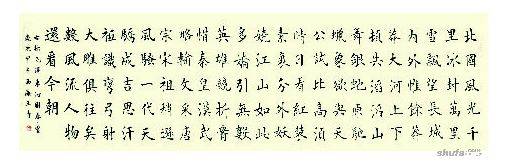 北國風光千
里冰封萬里
雪飄望長城
內外惟餘莽
莽大河上下
頓失滔滔山
舞銀蛇原馳
蠟象欲與天
公試比高須
晴日看紅裝
素裹分外妖
嬈江山如此
多嬌引無數
英雄競折腰
惜秦皇漢武
略輸文采唐
宗宋祖稍遜
風騷一代天
驕成吉思汗
祗識彎弓射
大雕俱往矣
數風流人物
還看今朝
shufa.com